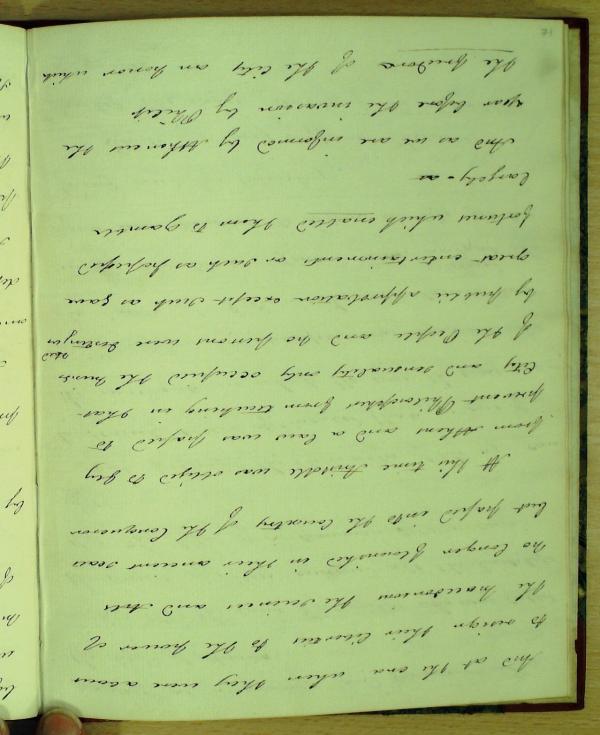 And at the era when they were about
to resign their liberties to the power of
the Macedonian the sciences and Arts
no longer flourished in their ancient seats
but passed into the Country of the Conqueror
At this time Aristotle was obliged to fly
from Athens and a law was passed to
prevent Philosophers from teaching in that
City and sensuality only occupied the minds
of the People and no persons were distinguished
by public approbation except such as gave
great entertainments or such as possessed
fortunes which enabled them to gamble
largely - as
And as we are informed by the
year before the invasion by Philip
the freedom of the City an honor which